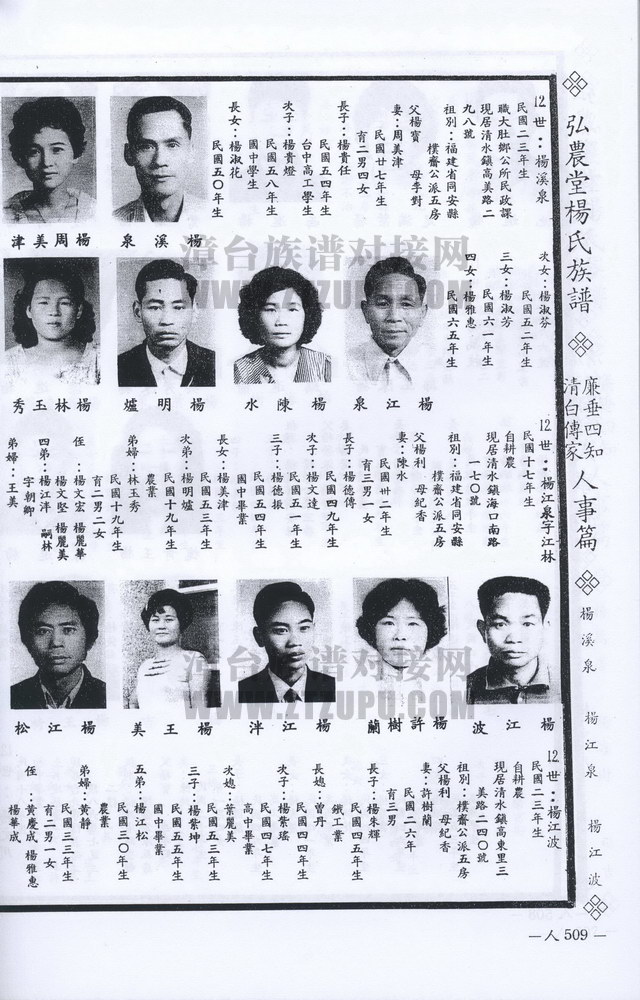 弘農堂楊氏族譜
廉垂四知
清白傳家
人事篇
楊溪泉
楊江泉
楊江波
12世：楊溪泉
民國二三年生
職大肚鄉公所民政課
現居清水鎮高美路二
九八號
祖別：福建省同安縣
樸齋公派五房
父楊寶 母李對
妻：周美津
民國廿七年生
育二男四女
長子：楊貴任
民國五四年生
台中高工學生
次子：楊貴燈
民國五八年生
國中學生
長女：楊淑花
民國五〇年生
楊溪泉
楊周美津
次女：楊淑芬
民國五二年生
三女：楊淑芳
民國六一年生
四女：楊雅惠
民國六五年生
楊江泉
楊陳水
楊明爐
楊林玉秀
12世：楊江泉字江林
民國十七年生
自耕農
現居清水鎮海口南路
一七〇號
祖別：福建省同安縣
樸齋公派五房
父楊利 母紀香
妻：陳水
民國卅二年生
育三男一女
長子：楊德傳
民國四九年生
次子：楊文達
民國五一年生
三子：楊德振
民國五四年生
國中畢業
長女：楊美津
民國五三年生
次弟：楊明爐
民國十九年生
農業
弟婦：林玉秀
民國十九年生
育二男二女
侄：楊文宏 楊麗華
楊文堅 楊麗美
四弟：楊江泮 嗣林
字朝卿
弟婦：王美
楊江波
楊許樹蘭
楊江泮
楊王美
楊江松
12世：楊江波
民國二三年生
自耕農
現居清水鎮高東里三
美路二四〇號
祖別：樸齋公派五房
父楊利 母紀香
妻：許樹蘭
民國二六年
育三男
長子：楊朱輝
民國四五年生
鐵工業
長媳：曾丹
民國四四年生
次子：楊紫瑤
民國四七年生
高中畢業
次媳：葉麗美
民國五三年生
三子：楊紫坤
民國五五年生
國中畢業
五弟：楊江松
民國三〇年生
農業
弟婦：黃靜
民國三三年生
育二男一女
侄：黃慶成 楊雅惠
楊華成
—人509—
漳台族谱对接网
WWW.ZTZUPU.COM
漳台族谱对接网
WWW.ZTZUPU.COM